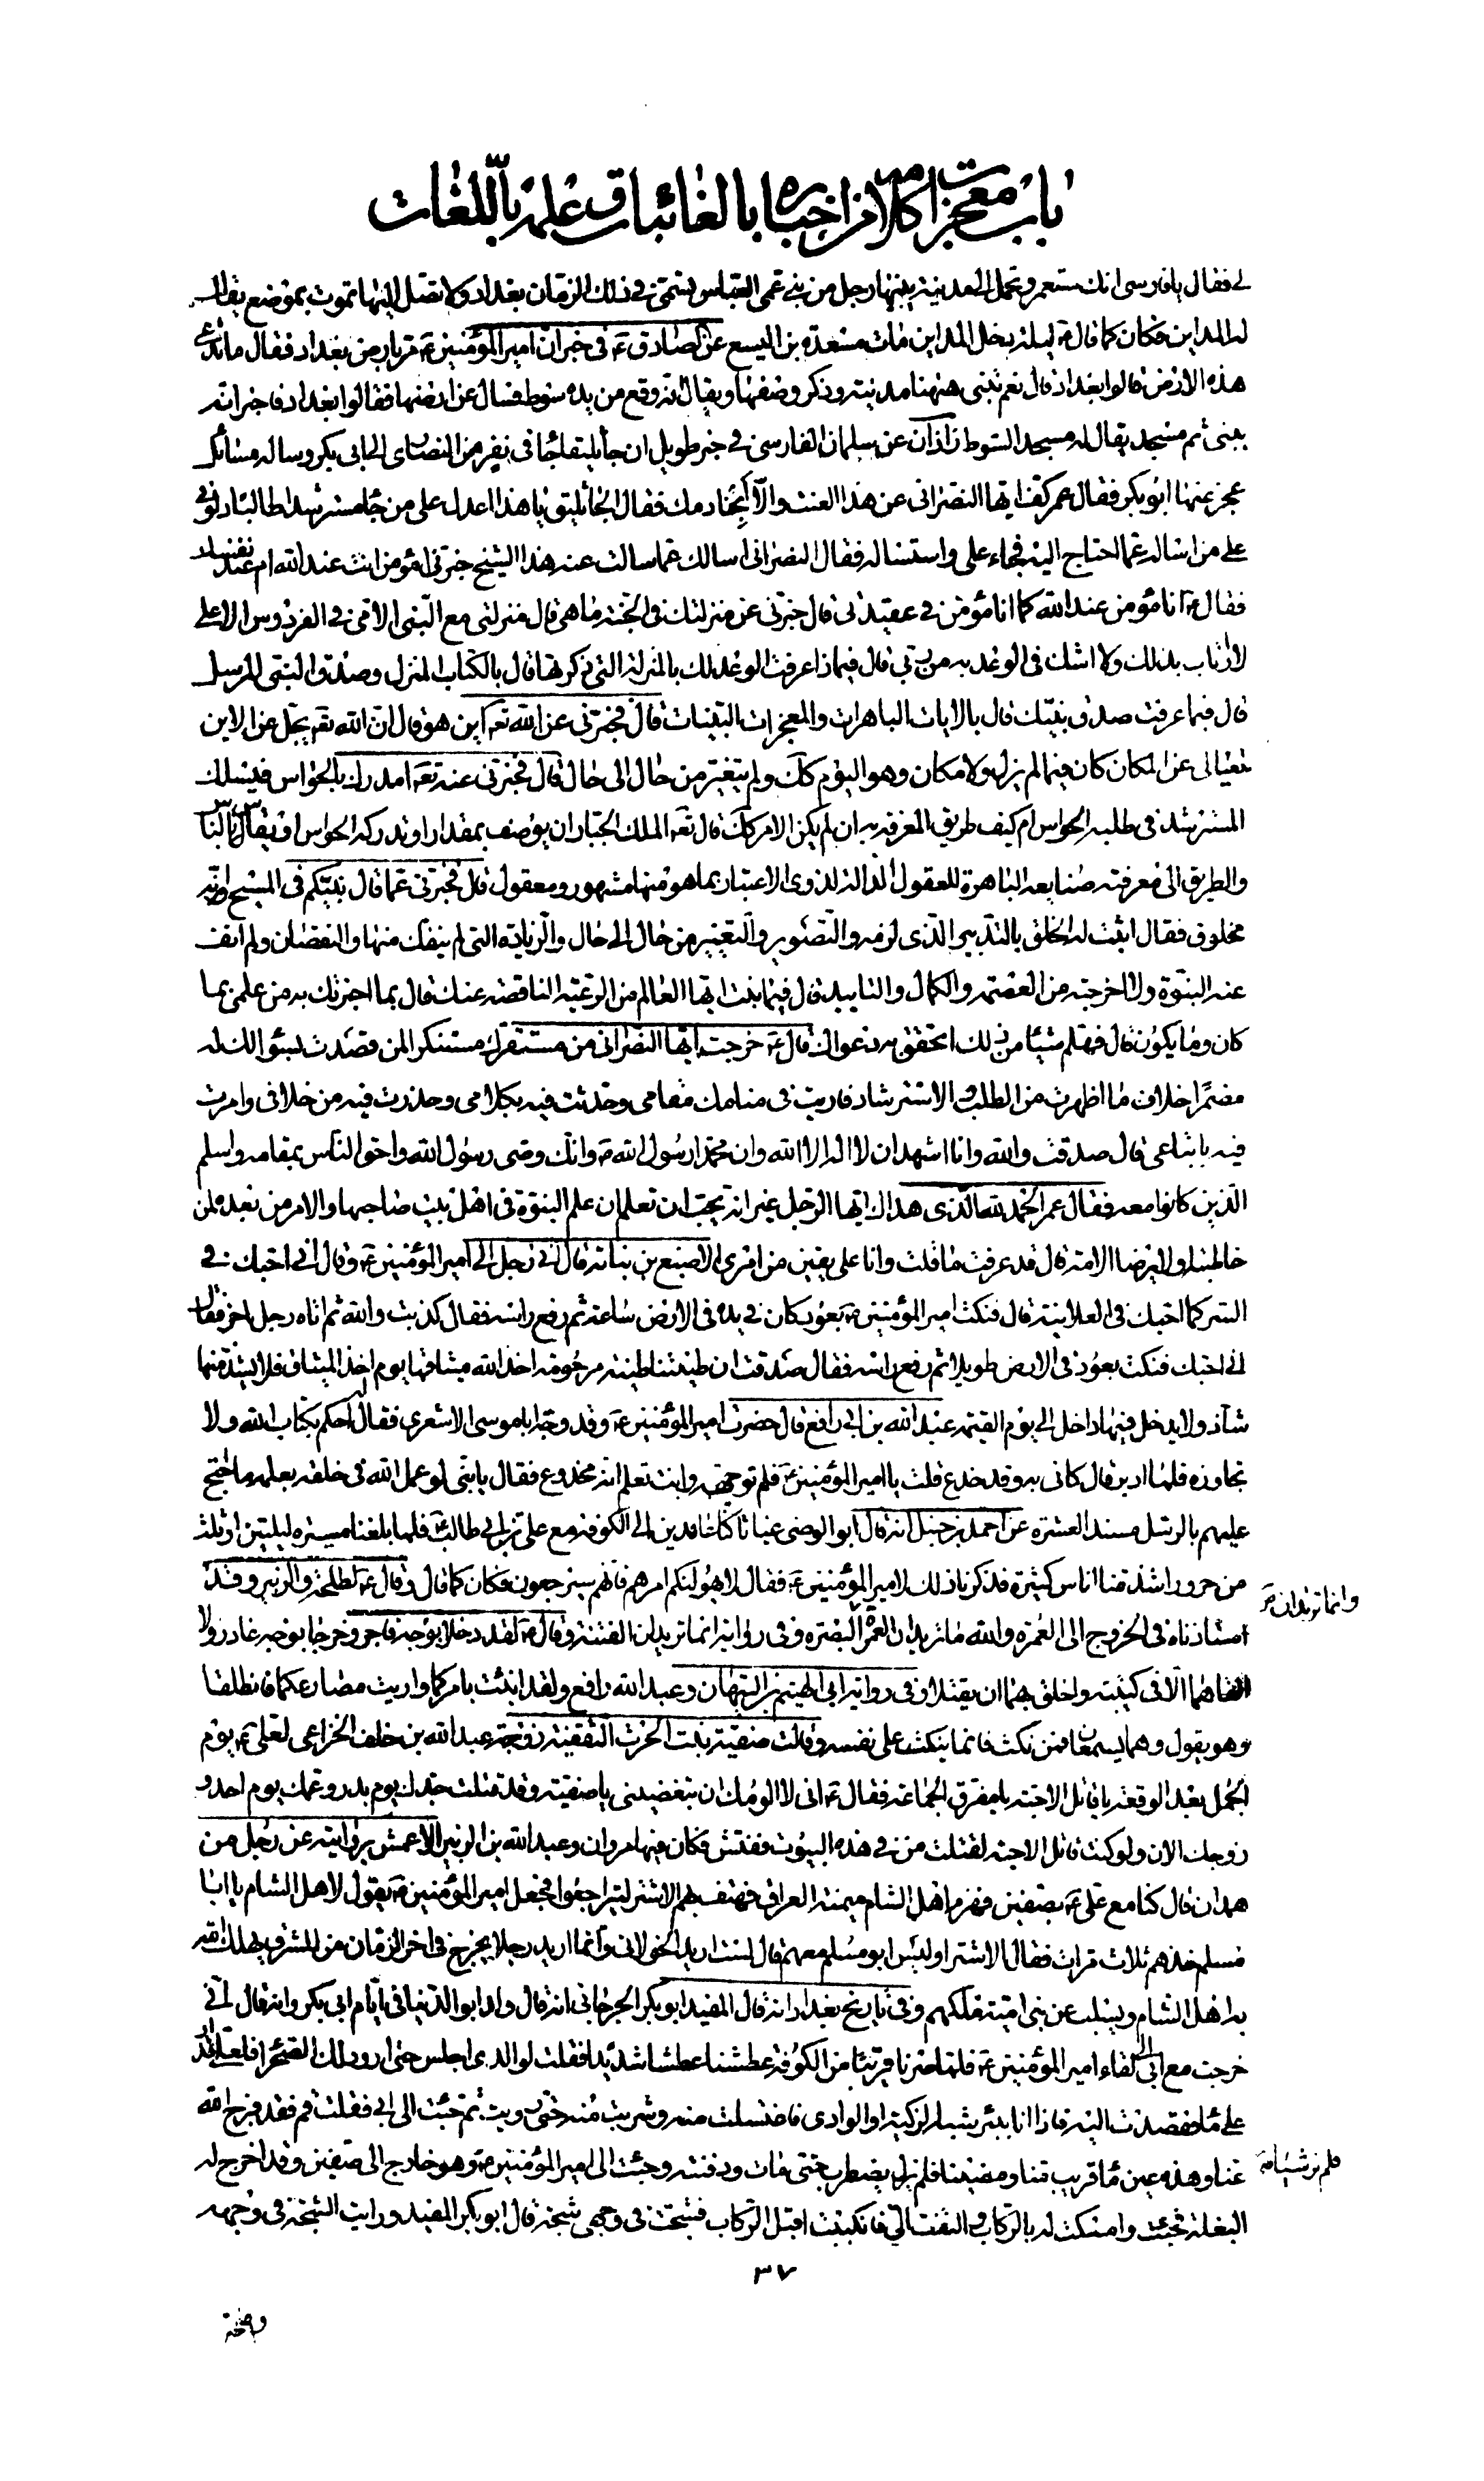 باب معجزات كلامه من اخباره بالغائبات و علمه باللغات
لي فقال يا فارسي انك ستعمر وتحمل الى مدينة يبنيها رجل من بني عمي العباس تسمى في ذلك الزمان بغداد ولا تصل اليها تموت بموضع يقال
له المداين فكان كما قال ع ليلة يدخل المداين مات مسعدة بن اليسع عن الصادق ع في خبر ان امير المؤمنين ع مر بارض بغداد فقال ما تدعى
هذه الارض قالوا بغداد قال نعم تبنى ههنا مدينة وذكر وصفها ويقال انه وقع من يده سوط فسال عن ارضها فقالوا بغداد فاخبر انه
يبنى ثم مسجد يقال له مسجد السوط زاذان عن سلمان الفارسي في خبر طويل ان جاثليقا جا في نفر من النصارى الى ابي بكر وساله مسائل
عجز عنها ابو بكر فقال عمر كف ايها النصراني عن هذا العنت والا ابحنا دمك فقال الجاثليق يا هذا اعدل على من جا مسترشدا طالبا دلوني
على من اساله عما احتاج اليه فجاء علي واستساله فقال النصراني اسالك عما سالت عنه هذا الشيخ خبرني امؤمن انت عند الله ام عند نفسك
فقال ع انا مؤمن عند الله كما انا مؤمن في عقيدتي قال خبرني عن منزلتك في الجنة ما هي قال منزلتي مع النبي الامي في الفردوس الاعلى
لا ارتاب بذلك ولا اشك في الوعد به من ربي قال فبماذا عرفت الوعد لك بالمنزلة التي ذكرتها قال بالكتاب المنزل وصدق النبي المرسل
قال فبما عرفت صدق نبيك قال بالايات الباهرات والمعجزات البينات قال فخبرني عن الله تعه اين هو قال ان الله تعه يجل عن الاين
يتعالى عن المكان كان فيما لم يزل ولا مكان وهو اليوم كك ولم يتغير من حال الى حال قال فخبرني عنه تعه امدرك بالحواس فيسلك
المسترشد في طلبه الحواس ام كيف طريق المعرفة به ان لم يكن الامر كك قال تعه الملك الجبار ان يوصف بمقدار او تدركه الحواس او يقاس بالناس
والطريق الى معرفته صنايعه الباهرة للعقول الدالة لذوي الاعتبار بما هو منها مشهور ومعقول قال فخبرني عما قال نبيكم في المسيح وانه
مخلوق فقال اثبت له الخلق بالتدبير الذي لزمه والتصوير والتغيير من حال الى حال والزيادة التي لم ينفك منها والنقصان ولم انف
عنه النبوة ولا اخرجته من العصمة والكمال والتاييد قال فبما بنت ايها العالم من الرعية الناقصة عنك قال بما اخبرتك به من علمي بما
كان وما يكون قال فهلم شيئا من ذلك اتحقق به دعواك قال ع خرجت ايها النصراني من مستقرك مستنكرا لمن قصدت بسؤالك له
مضمرا خلاف ما اظهرت من الطلب والاسترشاد فاريت في منامك مقامي وحدثت فيه بكلامي وحذرت فيه من خلافي وامرت
فيه باتباعي قال صدقت والله وانا اشهد ان لا اله الا الله وان محمدا رسول الله ص وانك وصي رسول الله واحق الناس بمقامه واسلم
الذين كانوا معه فقال عمر الحمد لله الذي هداك ايها الرجل غير انه يجب ان تعلم ان علم النبوة في اهل بيت صاحبها والامر من بعده لمن
خاطبته اولا برضا الامة قال قد عرفت ما قلت وانا على يقين من امري الاصبغ بن نباتة قال اتى رجل الى امير المؤمنين ع وقال اني احبك في
السر كما احبك في العلانية قال فنكت امير المؤمنين ع بعود كان في يده في الارض ساعة ثم رفع راسه فقال كذبت والله ثم اتاه رجل اخر فقال
اني احبك فنكت بعود في الارض طويلا ثم رفع راسه فقال صدقت ان طينتنا طينة مرحومة اخذ الله ميثاقها يوم اخذ الميثاق فلا يشذ منها
شاذ ولا يدخل فيها داخل الى يوم القيمة عبد الله بن ابي رافع قال حضرت امير المؤمنين ع وقد وجه ابا موسى الاشعري فقال له احكم بكتاب الله ولا
تجاوزه فلما ادبر قال كاني به وقد خدع قلت يا امير المؤمنين ع فلم توجهه وانت تعلم انه مخدوع فقال يا بني لو عمل الله في خلقه بعلمه ما احتج
عليهم بالرسل مسند العشرة عن احمد بن حنبل انه قال ابو الوضي عباثا كنا عامدين الى الكوفة مع علي بن ابي طالب ع فلما بلغنا مسيرة ليلتين او ثلث
من حرورا شذ منا اناس كثيرة فذكرنا ذلك لامير المؤمنين ع فقال لا يهولنكم امرهم فانهم سيرجعون فكان كما قال وقال ع لطلحة والزبير وقد
استاذناه في الخروج الى العمرة والله ما تريدان العمرة البصرة وفي رواية انما تريدان الفتنة وقال ع لقد دخلا بوجه فاجر وخرجا بوجه غادر ولا
وانما تريدان
القاهما الا في كتيبة واخلق بهما ان يقتلا وفي رواية ابي الهيثم بن التيهان وعبد الله رافع ولقد انبئت بامركما واريت مصارعكما فانطلقا
وهو يقول وهما يسمعان فمن نكث فانما ينكث على نفسه وقالت صفية بنت الحرث الثقفية زوجة عبد الله بن خلف الخزاعي لعلي ع يوم
الجمل بعد الوقعة يا قاتل الاحبة يا مفرق الجماعة فقال ع اني لا الومك ان تبغضيني يا صفية وقد قتلت جدك يوم بدر وعمك يوم احد و
زوجك الان ولو كنت قاتل الاحبة لقتلت من في هذه البيوت ففتش فكان فيها مروان وعبد الله بن الزبير الاعمش بروايته عن رجل من
همدان قال كنا مع علي ع بصفين فهزم اهل الشام ميمنة العراق فهتف بهم الاشتر ليتراجعوا فجعل امير المؤمنين ع يقول لاهل الشام يا ابا
مسلم خذهم ثلاث مرات فقال الاشتر اوليس ابو مسلم معهم قال لست اريد الخولاني وانما اريد رجلا يخرج في اخر الزمان من المشرق يهلك الله
به اهل الشام ويسلب عن بني امية ملكهم وفي تاريخ بغداد انه قال المفيد ابو بكر الجرجاني انه قال ولد ابو الدنيا في ايام ابي بكر وانه قال اني
خرجت مع ابي الى لقاء امير المؤمنين ع فلما صرنا قريبا من الكوفة عطشنا عطشا شديدا فقلت لوالدي اجلس حتى ارود لك الصحرا فلعلي اقدر
على ماء فقصدت اليه فاذا انا ببئر شبه الركية او الوادي فاغتسلت منه وشربت منه حتى رويت ثم جئت الى ابي فقلت قم فقد فرج الله
عنا وهذه عين ماء قريب منا ومضينا فلم يزل يضطرب حتى مات ودفنته وجئت الى امير المؤمنين ع وهو خارج الى صفين وقد اخرج له
فلم نر شيئا
البغلة فجئت وامسكت له بالركاب والتفت الي فانكببت اقبل الركاب فشجت في وجهي شجة قال ابو بكر المفيد ورايت الشجة في وجهه
٣٧
واضحة